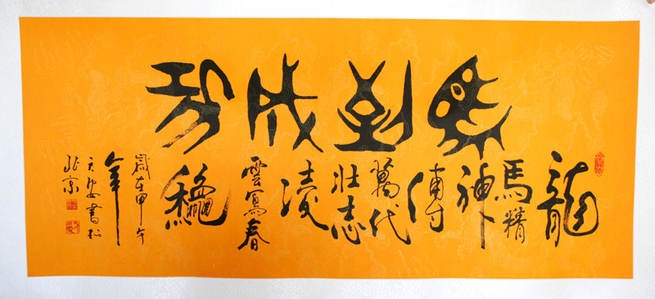 馬到成功
龍
馬精
神
傳
萬代
壯志
凌
雲寫春
龝
歲在甲午
年
書於
北京